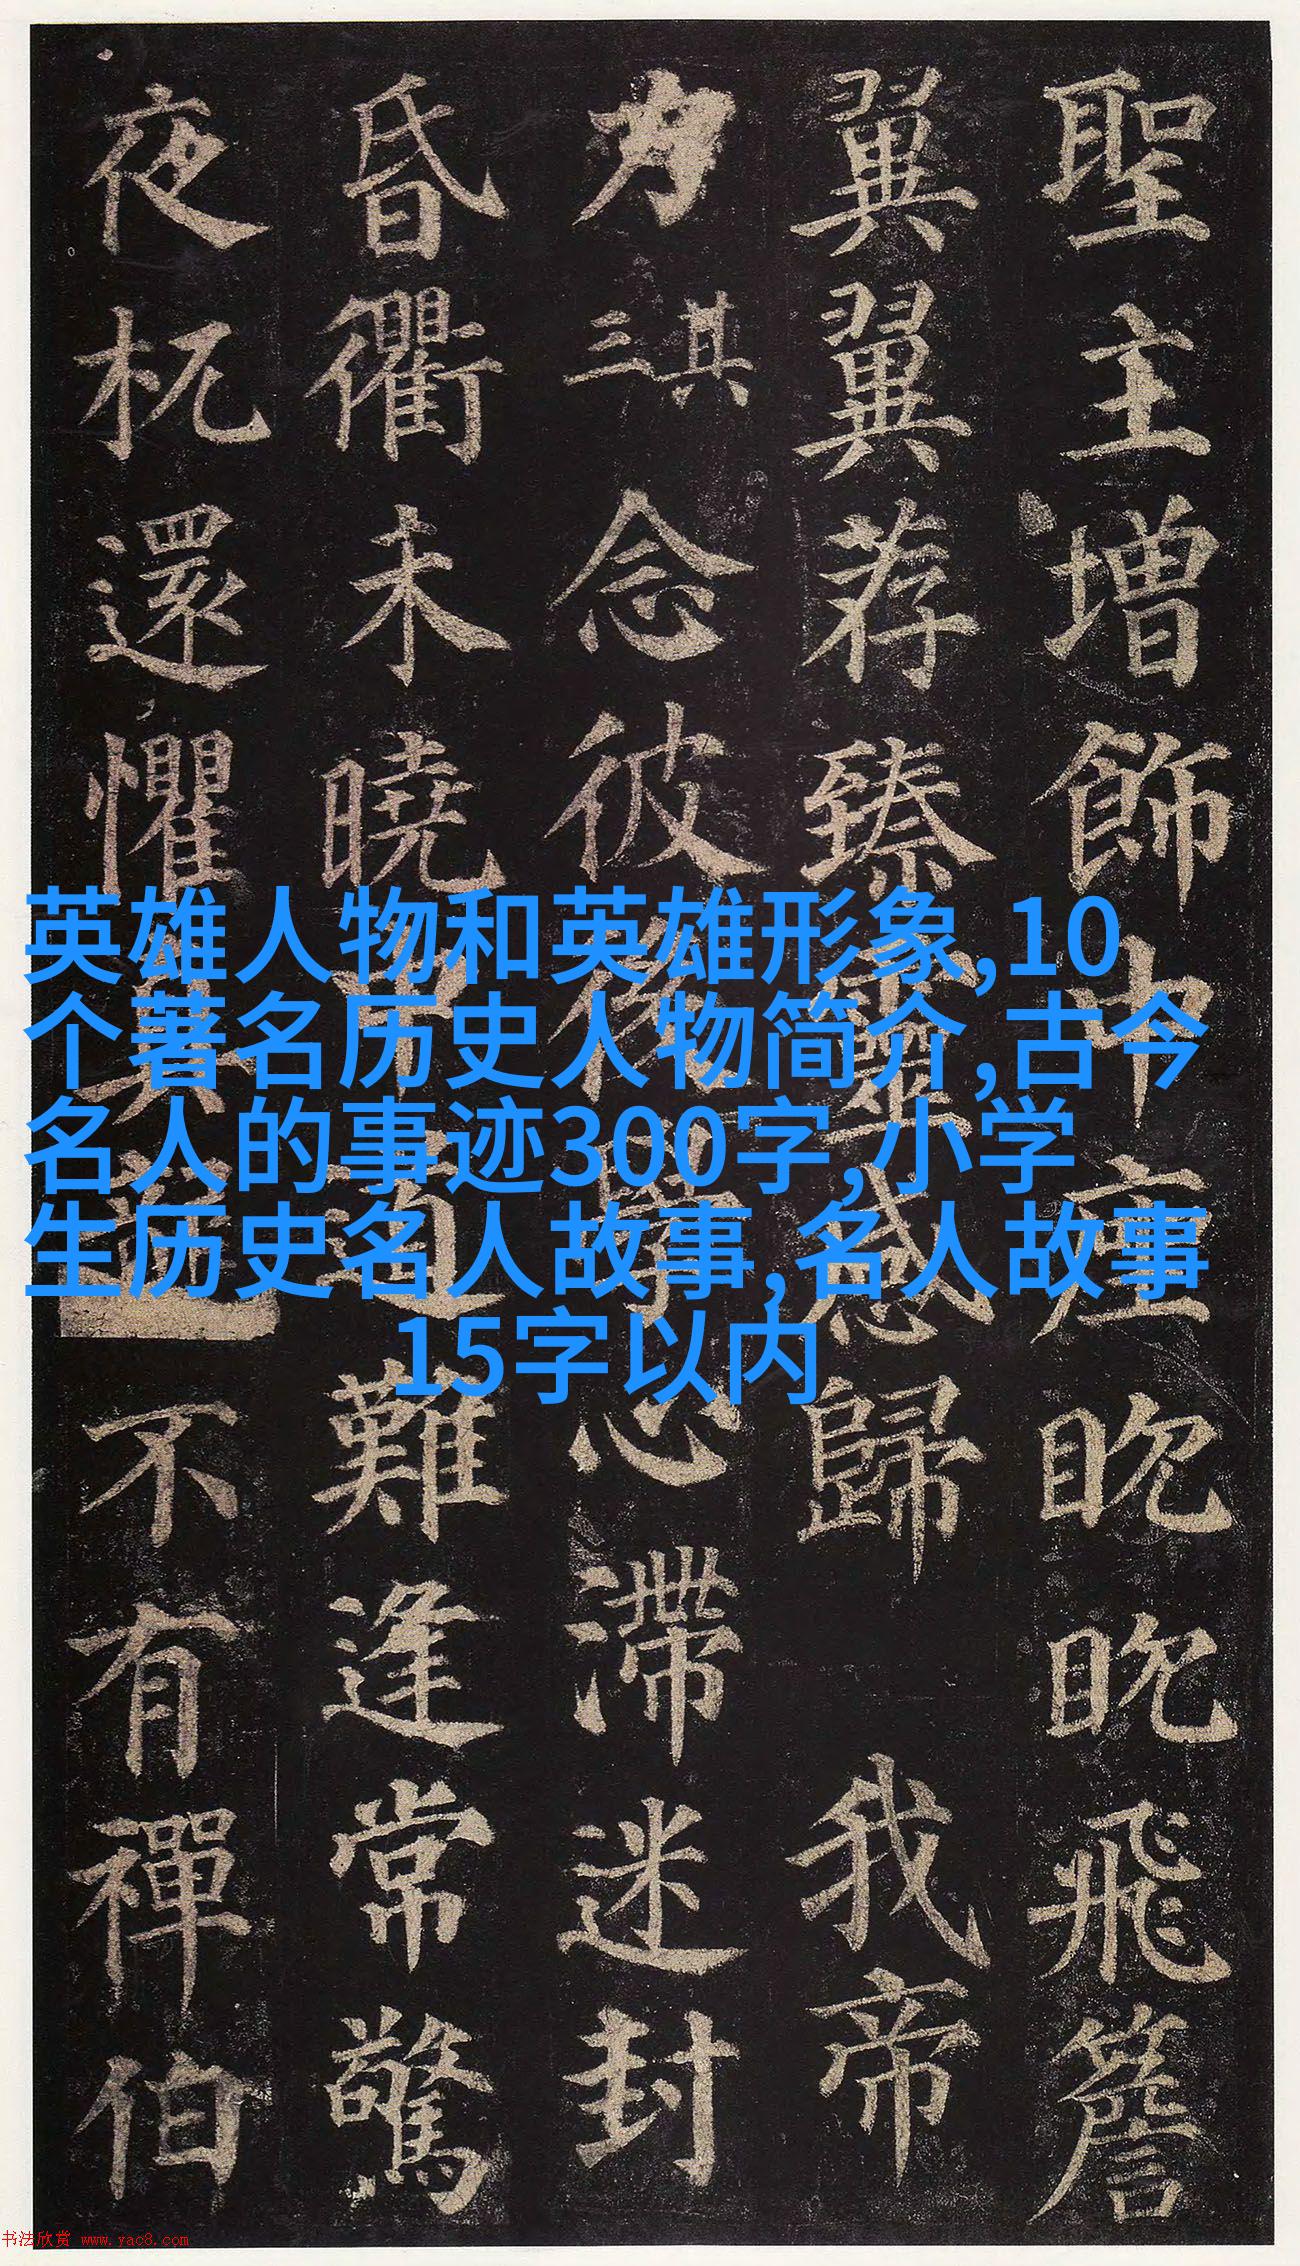 聖主增飾中㾏眖眖飛簷
翼翼荐臻靈感歸我帝
力其三念彼後學心滯迷封
昏衢未曉中道難逢常驚
夜杌還懼真龍不有禪伯
英雄人物和英雄形象,10
个著名历史人物简介,古今
名人的事迹300字,小学
生历史名人故事,名人故事
15字以内
书法欣赏 www.yac8.com